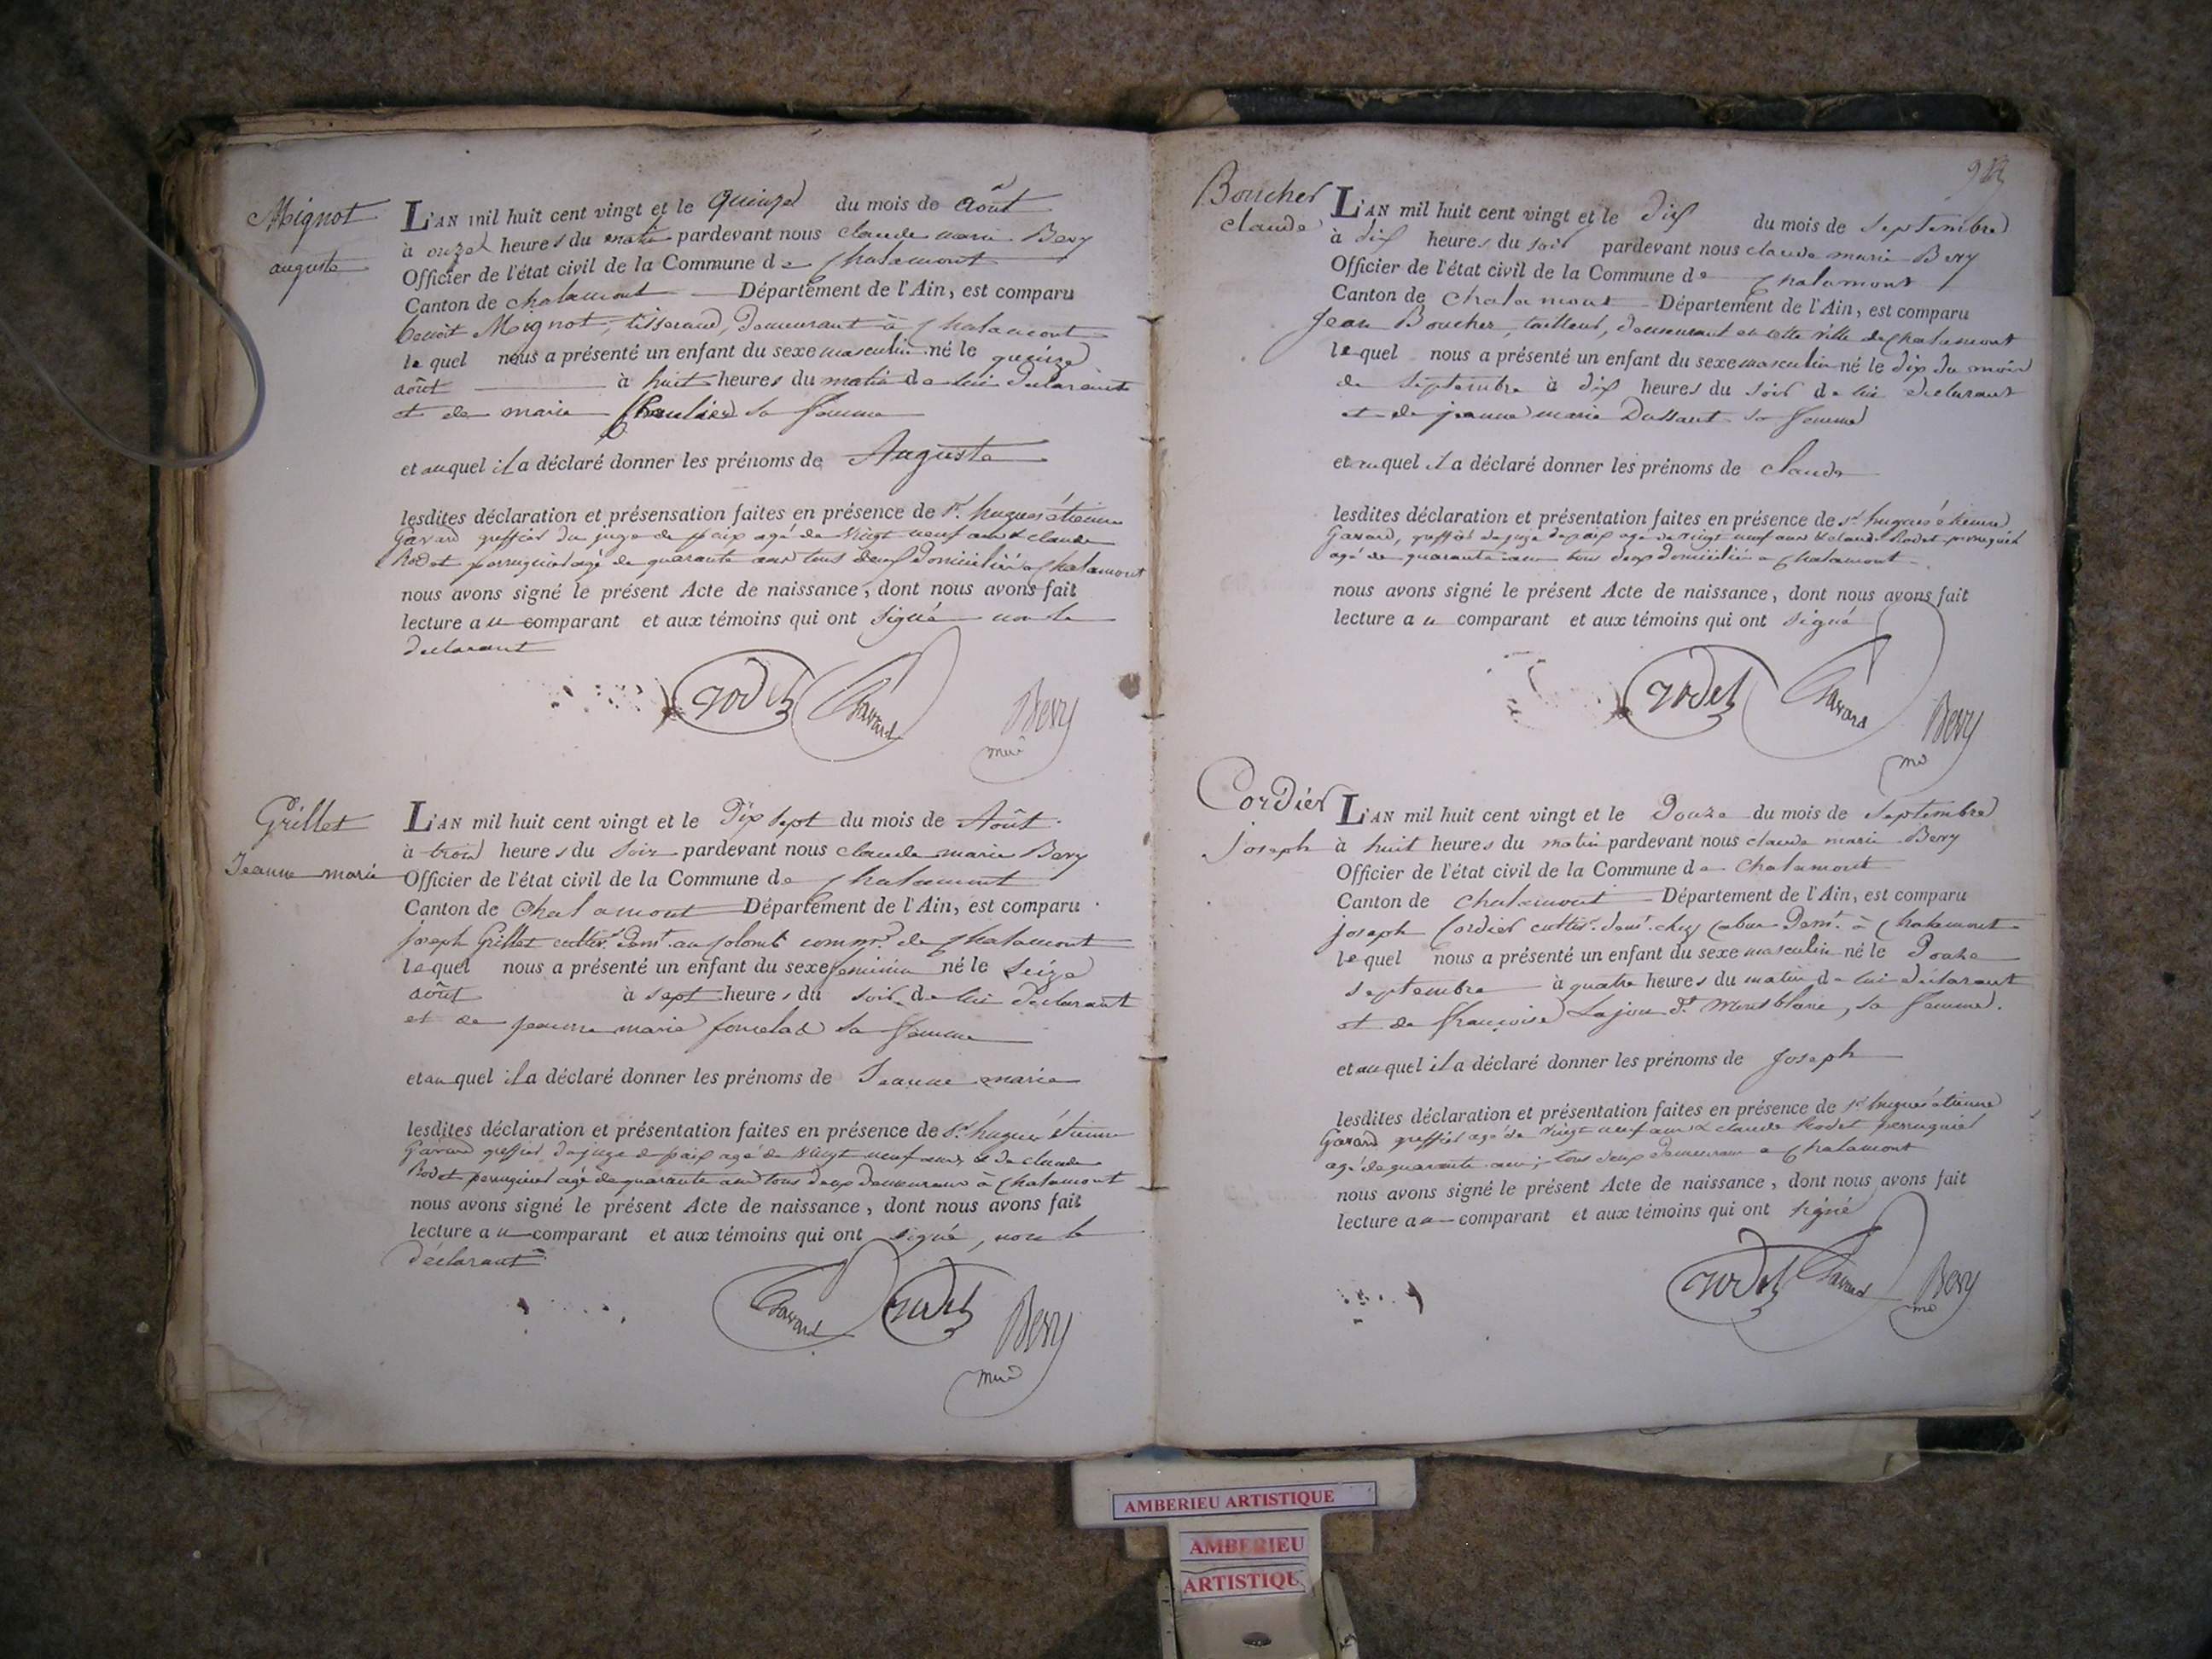 Mignot
auguste
L'AN mil huit cent vingt et le quinze du mois de août
à onze heures du matin pardevant nous claude marie Bevy
Officier de l'état civil de la Commune de Chalamont
Canton de chalamont Département de l'Ain, est comparu
benoit Mignot, tisserand, Demeurant à Chalamont
lequel nous a présenté un enfant du sexe masculin né le quinze
août à huit heures du matin de lui Déclarant
et de marie sa femme
et auquel il a déclaré donner les prénoms de Auguste
lesdites déclaration et présensation faites en présence de Sr. hugues étienne
Gavard greffier du juge de paix agé de vingt neuf ans & claude
Rodet perruquier agé de quarante ans tous deux domiciliés à Chalamont
nous avons signé le présent Acte de naissance, dont nous avons fait
lecture au comparant et aux témoins qui ont signé non le
déclarant
rodet Gavard Bevy
Grillet
Jeanne marie
L'AN mil huit cent vingt et le Dix sept du mois de Août
à trois heures du Soir pardevant nous claude marie Bevy
Officier de l'état civil de la Commune de Chalamont
Canton de Chalamont Département de l'Ain, est comparu
joseph Grillet cultivr. demt. au Colomb comm. de Chalamont
lequel nous a présenté un enfant du sexe feminin né le Seize
août à sept heures du soir de lui Déclarant
et de jeanne marie sa femme
et auquel il a déclaré donner les prénoms de Jeanne marie
lesdites déclaration et présentation faites en présence de Sr. hugues étienne
Gavard greffier du juge de paix agé de vingt neuf ans, & de claude
Rodet perruquier agé de quarante ans tous deux demeurans à Chalamont
nous avons signé le présent Acte de naissance, dont nous avons fait
lecture au comparant et aux témoins qui ont signé, non le
déclarant
Gavard rodet Bevy
Boucher
claude
L'AN mil huit cent vingt et le dix du mois de Septembre
à dix heures du soir pardevant nous claude marie Bevy
Officier de l'état civil de la Commune de Chalamont
Canton de Chalamont Département de l'Ain, est comparu
Jean Boucher, tailleur, demeurant en cette ville de Chalamont
lequel nous a présenté un enfant du sexe masculin né le dix du mois
de Septembre à dix heures du soir de lui déclarant
et de jeanne marie Dussaut sa femme
et auquel il a déclaré donner les prénoms de claude
lesdites déclaration et présentation faites en présence de sr. hugues étienne
Gavard, greffier du juge de paix agé de vingt neuf ans & claude Rodet perruquier
agé de quarante ans tous deux domiciliés à Chalamont
nous avons signé le présent Acte de naissance, dont nous avons fait
lecture au comparant et aux témoins qui ont signé
rodet Gavard Bevy
Cordier
joseph
L'AN mil huit cent vingt et le Douze du mois de Septembre
à huit heures du matin pardevant nous claude marie Bevy
Officier de l'état civil de la Commune de Chalamont
Canton de Chalamont Département de l'Ain, est comparu
joseph Cordier cultr. demt. chez demt. à Chalamont
lequel nous a présenté un enfant du sexe masculin né le Douze
septembre à quatre heures du matin de lui déclarant
et de françoise Lajon dt. Montblanc, sa femme.
et auquel il a déclaré donner les prénoms de joseph
lesdites déclaration et présentation faites en présence de sr. hugues étienne
Gavard greffier agé de vingt neuf ans & claude Rodet perruquier
agé de quarante ans, tous deux demeurans à Chalamont
nous avons signé le présent Acte de naissance, dont nous avons fait
lecture au comparant et aux témoins qui ont signé
rodet Gavard Bevy
AMBERIEU ARTISTIQUE
AMBERIEU
ARTISTIQU